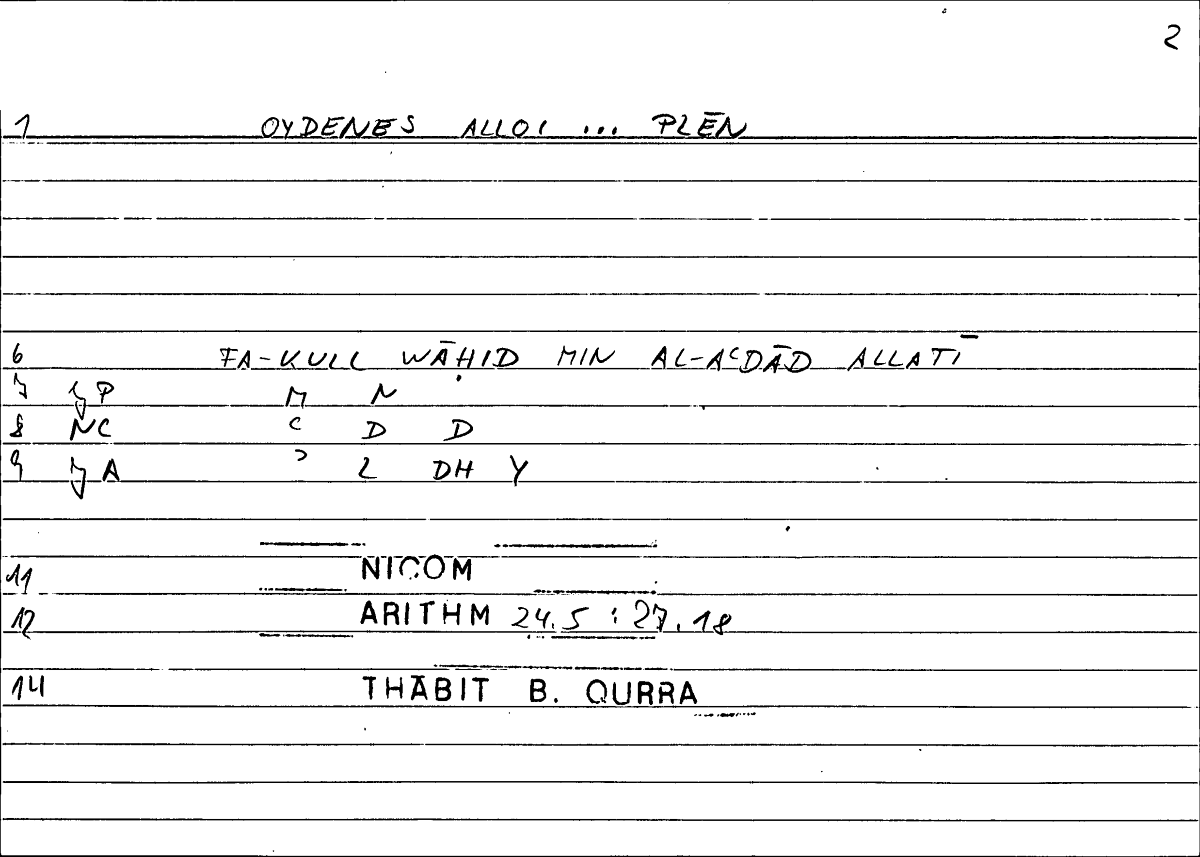 2
1 OYDENES ALLOI ... PLĒN
6 FA-KULL WĀḤID MIN AL-AʿDĀD ALLATĪ
7 P M N
8 NC ʿ D D
9 A ʾ L DH Y
11 NICOM
12 ARITHM 24.5 : 27.18
14 THĀBIT B. QURRA